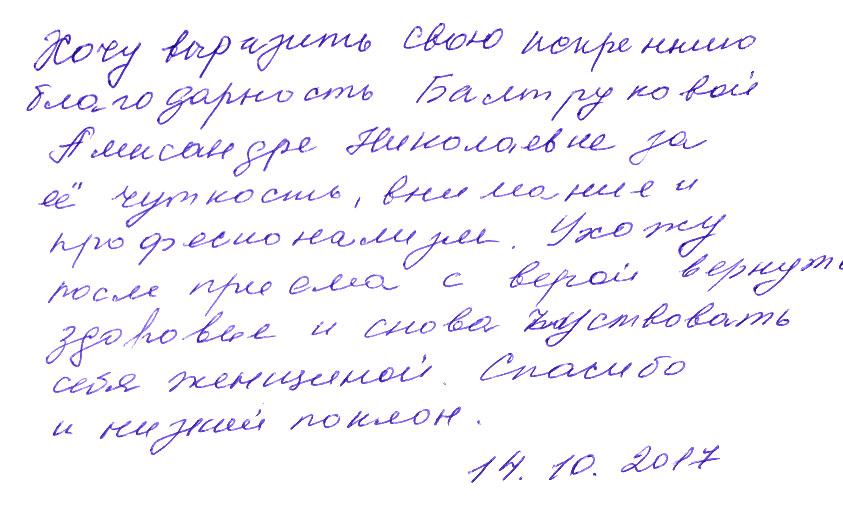 Хочу выразить свою искреннию
благодарность Балтруковой
Александре Николаевне за
её чуткость, внимание и
профессионализм. Ухожу
после приема с верой вернуть
здоровье и снова чуствовать
себя женщиной. Спасибо
и низкий поклон.
14.10.2017